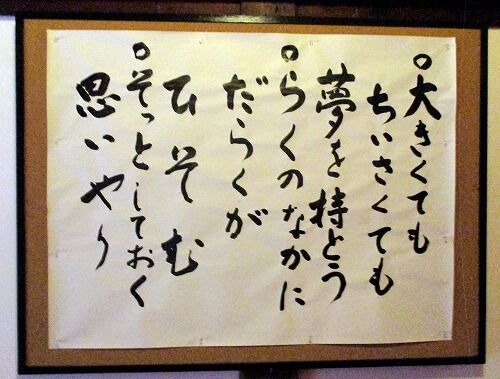 ○大きくても
ちいさくても
夢を持とう
○らくのなかに
だらくが
ひそむ
○そっとしておく
思いやり